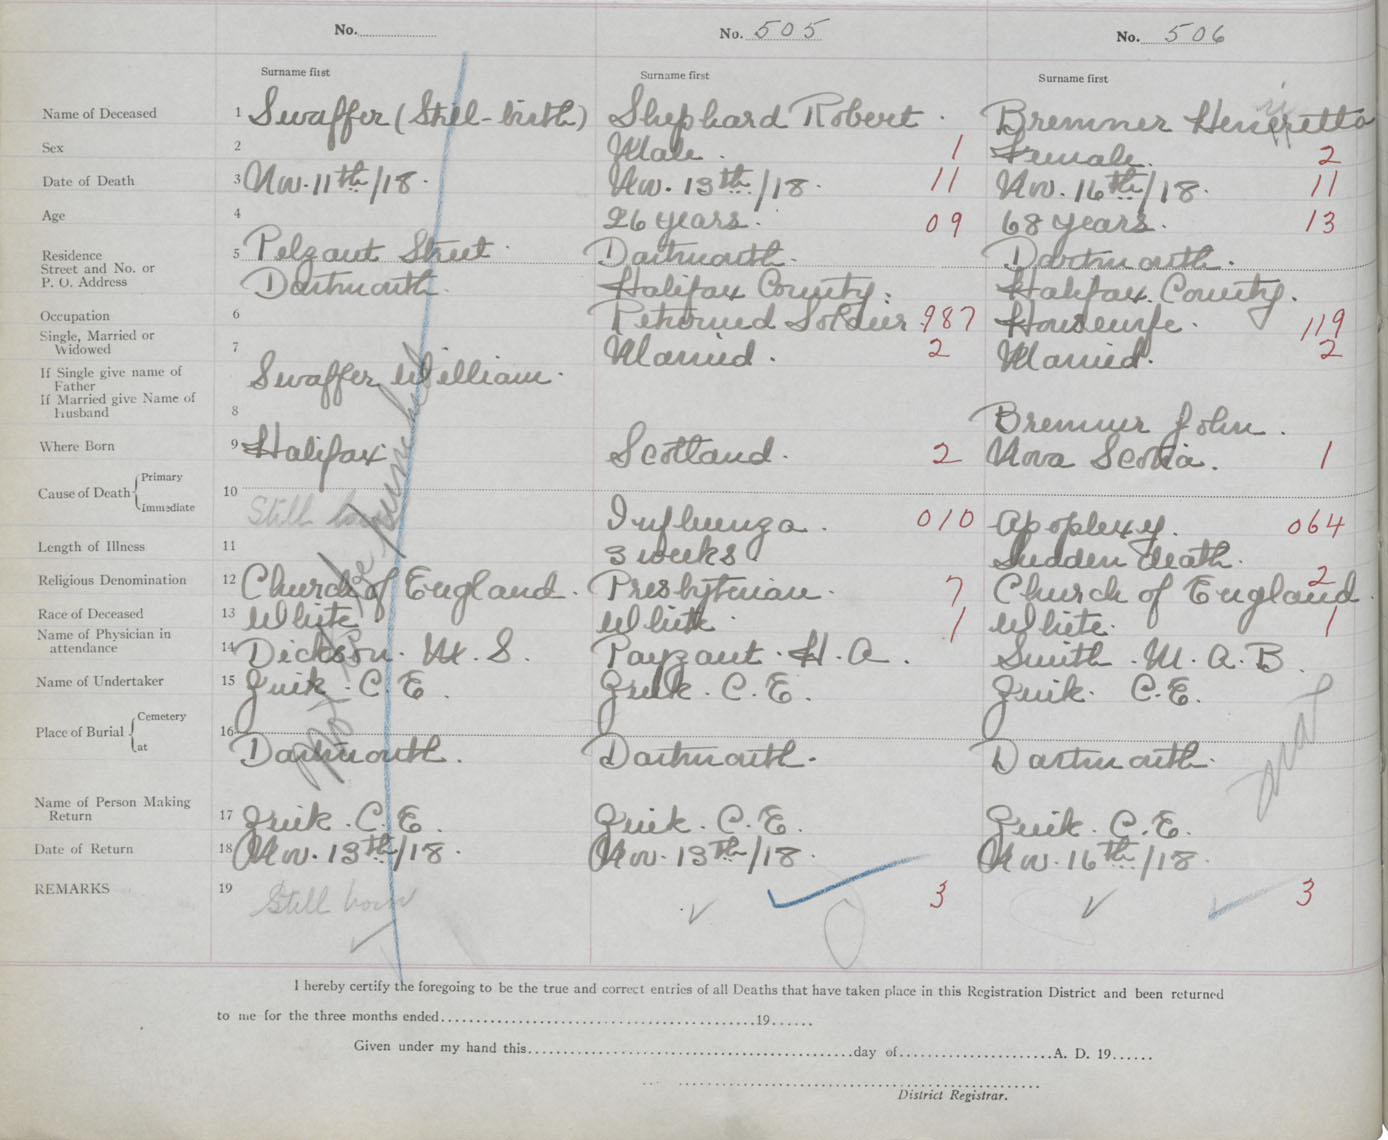 No. No. 505 No. 506
Surname first Surname first Surname first
Name of Deceased 1 Swaffer (Still-birth) Shephard Robert. Bremner Henrietta
Sex 2 Male. 1 Female. 2
Date of Death 3 Nov. 11th/18. Nov. 13th/18. 11 Nov. 16th/18. 11
Age 4 26 years. 09 68 years. 13
Residence Street and No. or P. O. Address 5 Street Dartmouth. Dartmouth. Halifax County. Dartmouth. Halifax County.
Occupation 6 Returned Soldier 987 Housewife. 119
Single, Married or Widowed 7 Married. 2 Married. 2
If Single give name of Father Swaffer William.
If Married give Name of Husband 8 Bremner John.
Where Born 9 Halifax Scotland. 2 Nova Scotia. 1
Cause of Death Primary Immediate 10 Still born Influenza. 010 Apoplexy. 064
Length of Illness 11 3 weeks Sudden death.
Religious Denomination 12 Church of England. Presbyterian. 7 Church of England. 2
Race of Deceased 13 White White. 1 White. 1
Name of Physician in attendance 14 Dickson. M. S. Payzant. H. A. Smith. M. A. B
Name of Undertaker 15 Zink. C. E. Zink. C. E. Zink. C. E.
Place of Burial Cemetery at 16 Dartmouth. Dartmouth. Dartmouth.
Name of Person Making Return 17 Zink. C. E. Zink. C. E. Zink. C. E.
Date of Return 18 Nov. 13th/18. Nov. 13th/18. Nov. 16th/18.
REMARKS 19 Still born 3 3
Not to be punched
I hereby certify the foregoing to be the true and correct entries of all Deaths that have taken place in this Registration District and been returned
to me for the three months ended 19
Given under my hand this day of A. D. 19
District Registrar.